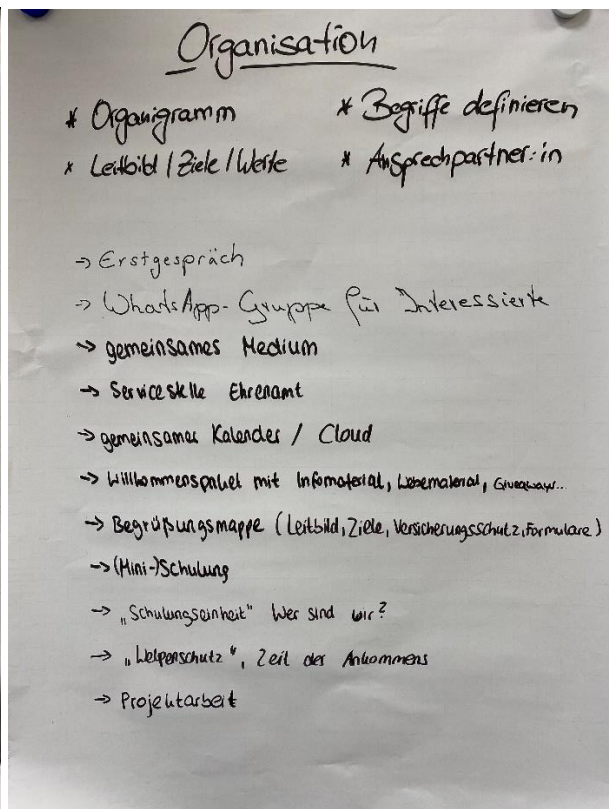 Organisation
* Organigramm
* Begriffe definieren
* Leitbild / Ziele / Werte
* Ansprechpartner:in
-> Erstgespräch
-> WhatsApp-Gruppe für Interessierte
-> gemeinsames Medium
-> Servicestelle Ehrenamt
-> gemeinsamer Kalender / Cloud
-> Willkommenspaket mit Infomaterial, Webematerial, Giveaways...
-> Begrüßungsmappe (Leitbild, Ziele, Versicherungsschutz, Formulare)
-> (Mini-)Schulung
-> „Schulungseinheit" Wer sind wir?
-> „Welpenschutz", Zeit des Ankommens
-> Projektarbeit